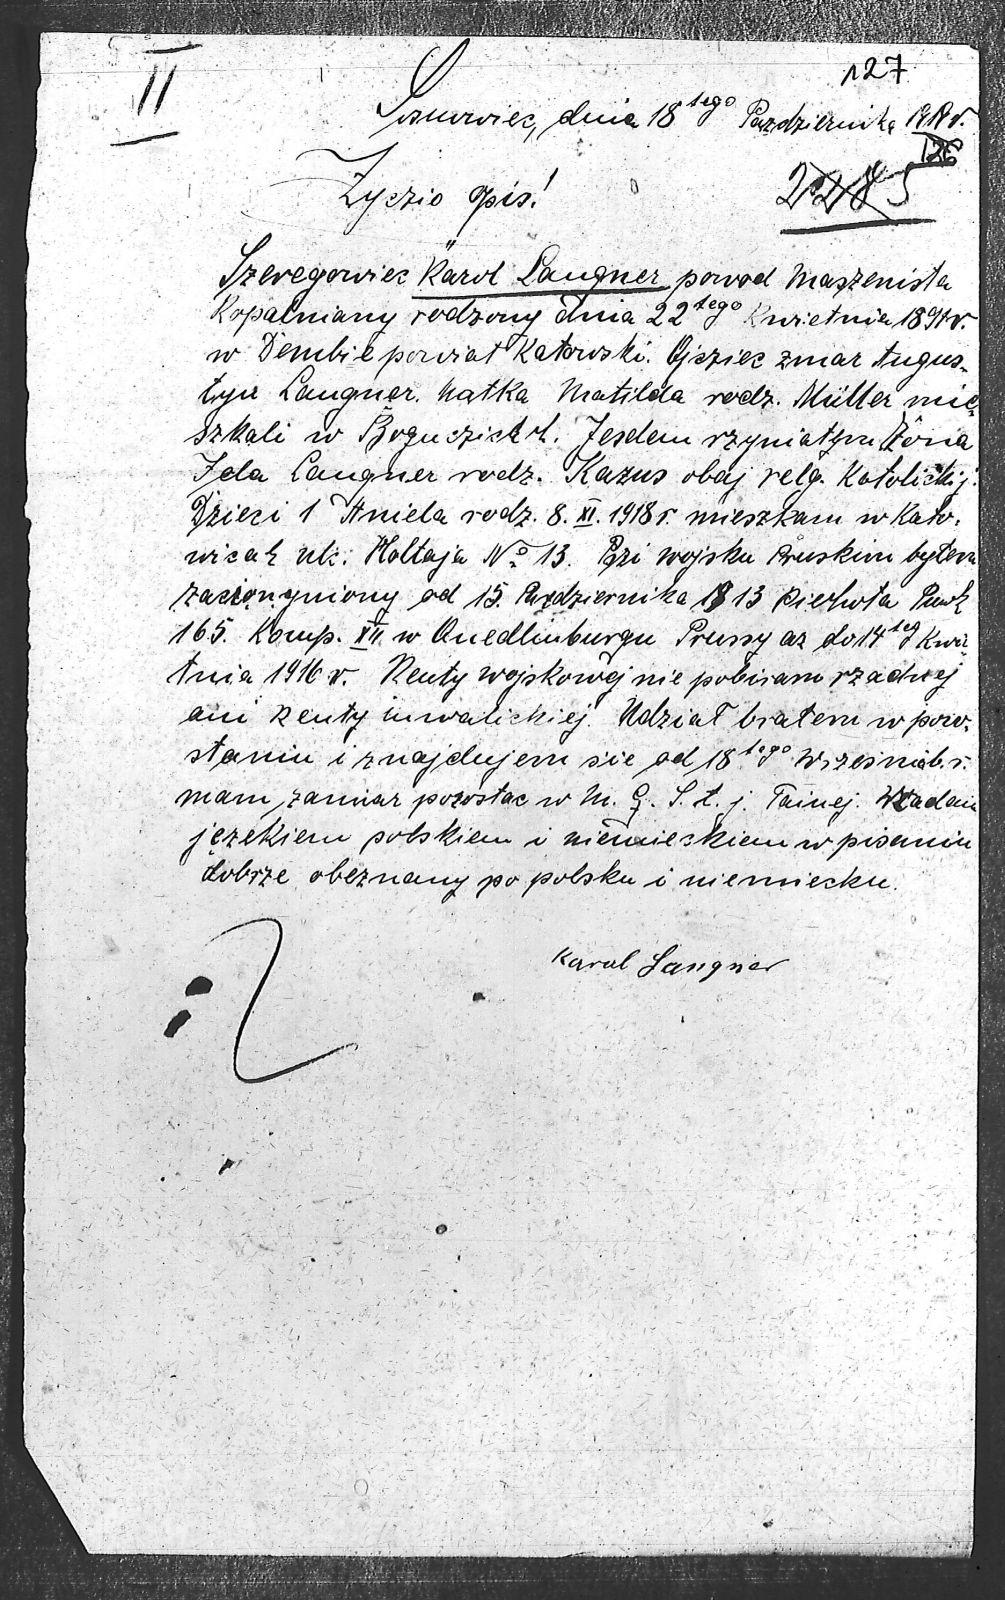 II
127
Sosnowiec, dnia 18tego Pazdziernika
126
2285
Zyczio opis!
Szeregowiec Karol Langner powod Maszenista
Kopalniany rodzony dnia 22tego Kwietnia 1891 r.
w Dembie powiat Katowski. Ojciec zmar Augus-
tyn Langner. Matka Matilda rodz. Müller mie-
szkali w Boguczicach. Jesdem rzyniatym Żona
Jda Langner rodz. Kazus obaj relg. Katolickij.
Dzieci 1 Aniela rodz. 8. XI. 1918 r. mieszkam w Kato-
wicah ulc: Holtaja No 13. Pszi wojsku Pruskim byłem
od 15. Pazdziernika 1913 Piehota
165. Komp. XII w Quedlinburgu Prussy az do 14teg Kwie-
tnia 1916 r. Renty wojskowej nie pobiram rzadnej
ani Renty inwalickiej. Udział brałem w powo-
staniu i znajdujem sie od 18tego Wrzesnia b. r.
mam zamiar pozostac w M. G. S. t. j. Tainej. Władam
językiem polskiem i niemieckiem w pisaniu
dobrze obeznany po polsku i niemiecku.
Karol Langner